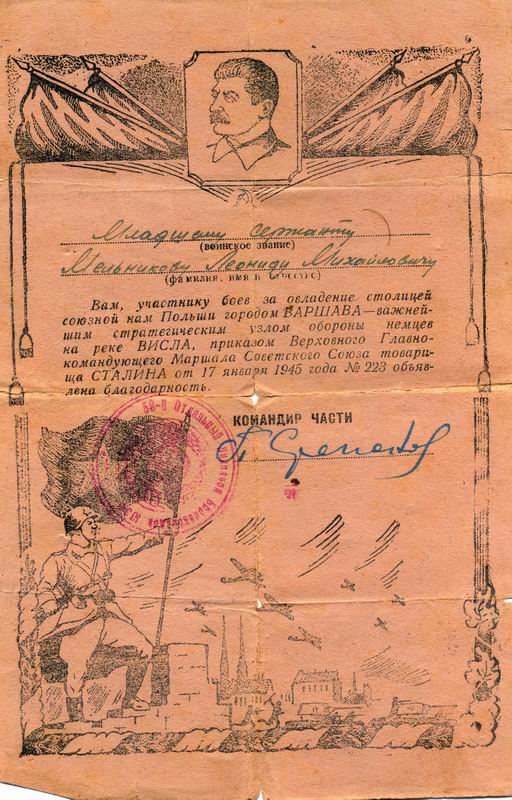 Младшему сержанту
(воинское звание)
Мельникову Леониду Михайловичу
(фамилия, имя и отчество)
Вам, участнику боев за овладение столицей
союзной нам Польши городом ВАРШАВА—важней-
шим стратегическим узлом обороны немцев
на реке ВИСЛА, приказом Верховного Главно-
командующего Маршала Советского Союза товари-
ща СТАЛИНА от 17 января 1945 года № 223 объяв-
лена благодарность.
КОМАНДИР ЧАСТИ